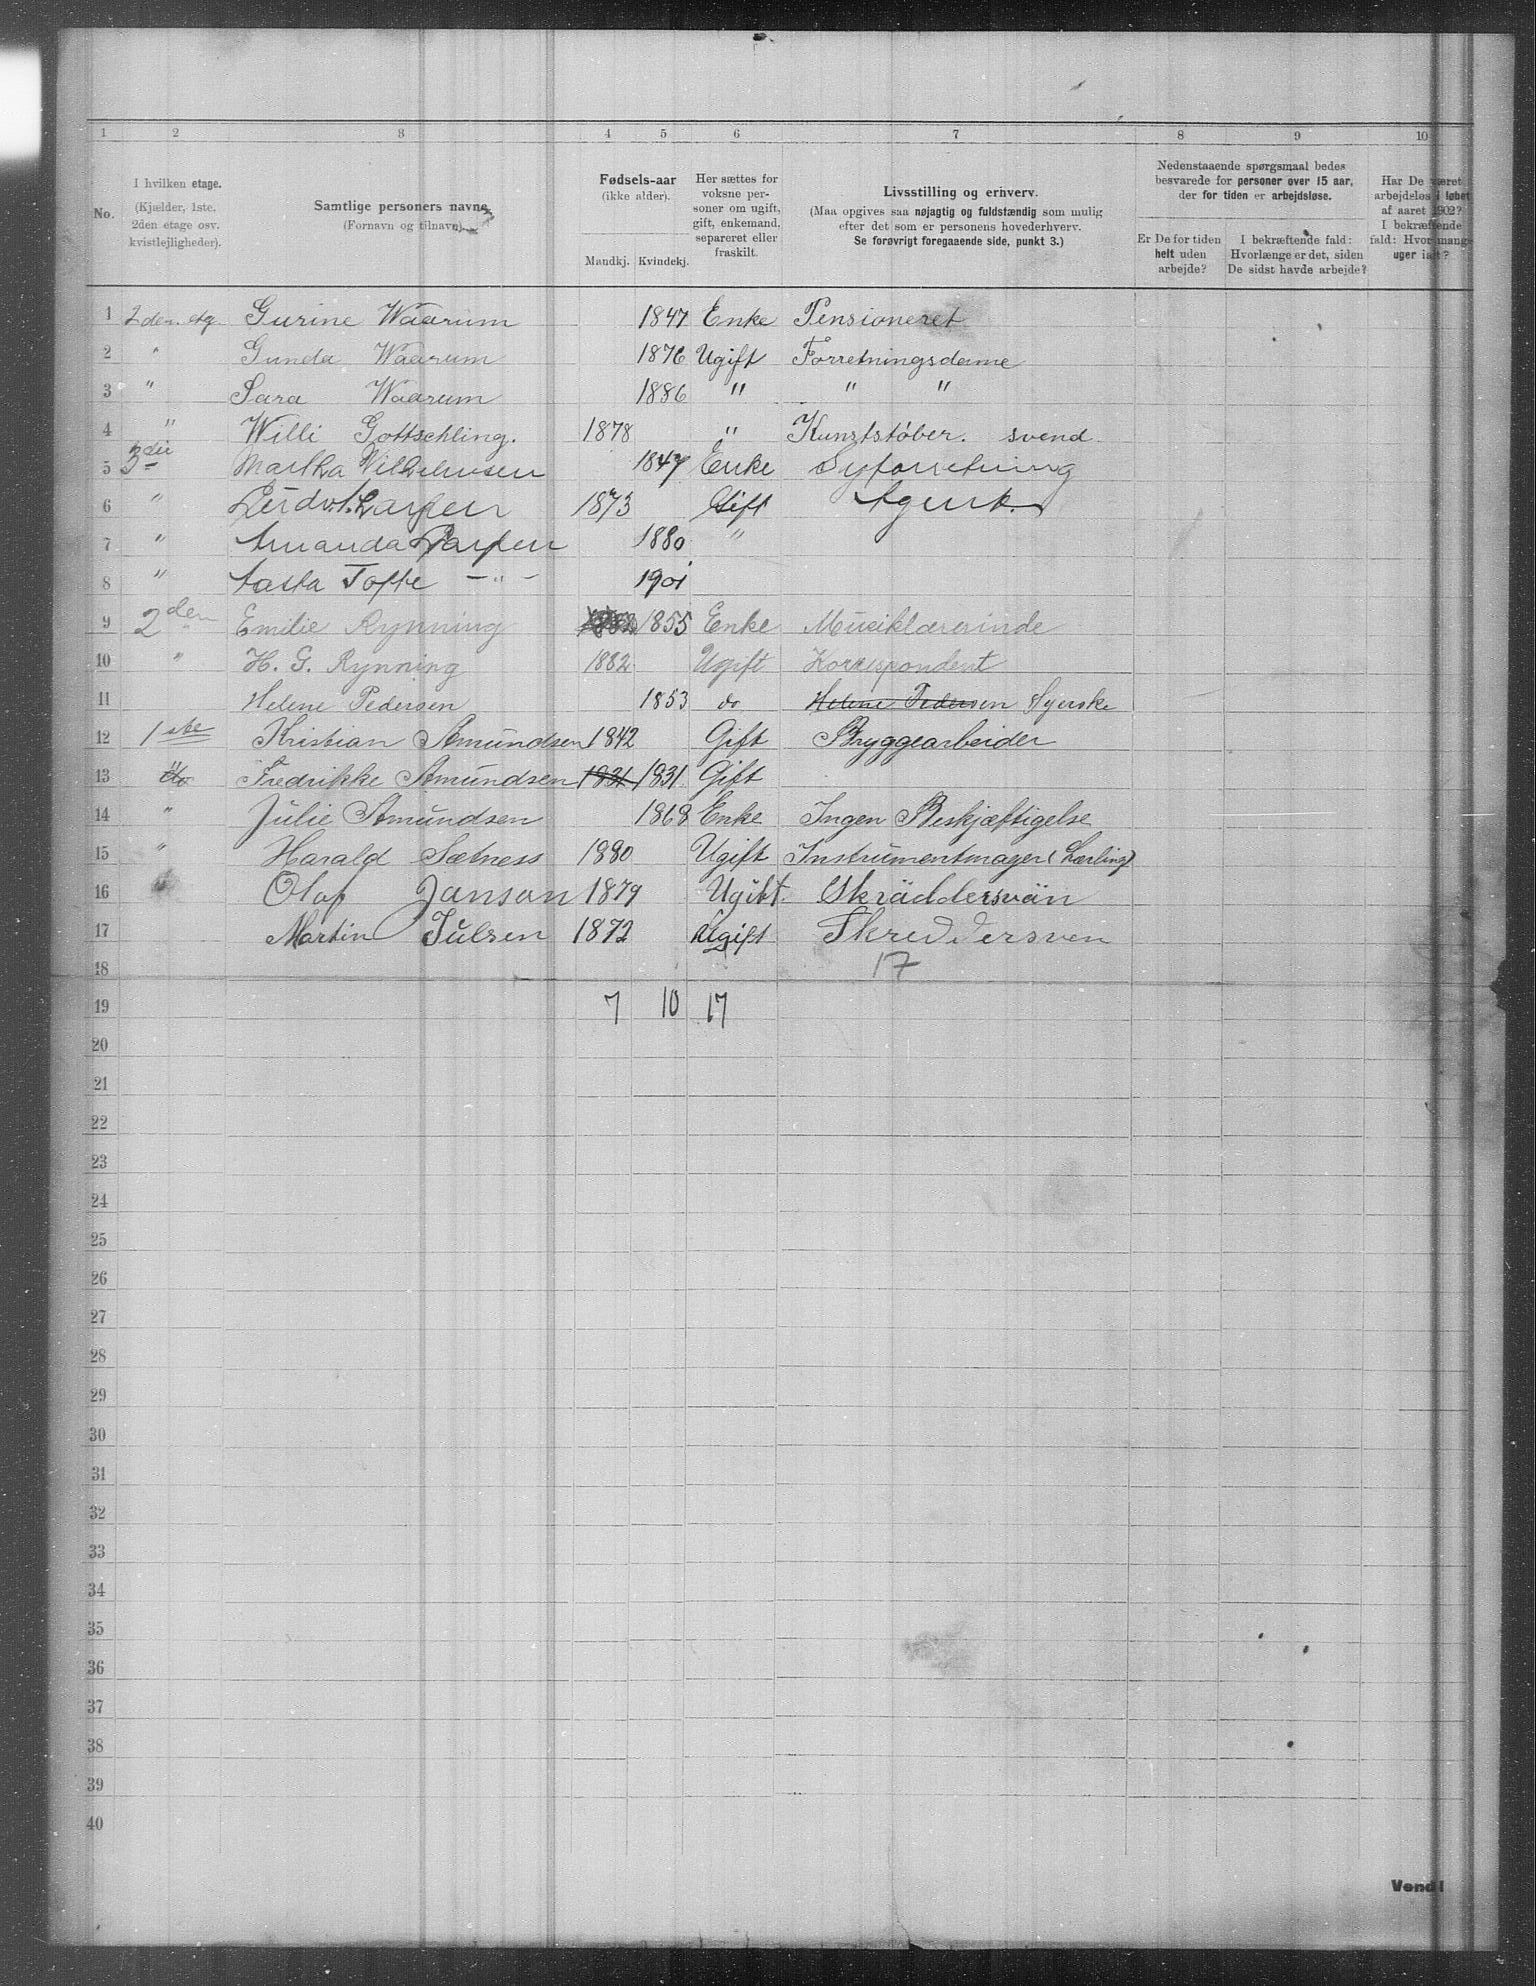 1 2 3 4 5 6 7 8 9 10
No.
I hvilken etage.
(Kjælder, 1ste.
2den etage osv.
kvistlejligheder).
Samtlige personers navne
(Fornavn og tilnavn).
Fødsels-aar
(ikke alder).
Mandkj. Kvindekj.
Her sættes for
voksne per-
soner om ugift,
gift, enkemand,
separeret eller
fraskilt.
Livsstilling og erhverv.
(Maa opgives saa nøjagtig og fuldstændig som mulig
efter det som er personens hovederhverv.
Se forøvrigt foregaaende side, punkt 3.)
Nedenstaaende spørgsmaal bedes
besvarede for personer over 15 aar,
der for tiden er arbejdsløse.
Er De for tiden
helt uden
arbejde?
I bekræftende fald:
Hvorlænge er det, siden
De sidst havde arbejde?
Har De været
arbejdsløs i løbet
af aaret 1902?
I bekræftende
fald: Hvor mang-
uger ialt?
1 2den etg. Gurine Waarum 1847 Enke Pensioneret
2 " Gunda Waarum 1876 Ugift Forretningsdame
3 " Sara Waarum 1886 " " "
4 " Willi Gottschling. 1878 " Kunststøber. svend.
5 3die Martha Vilhelmsen 1847 Enke Syforretning
6 " Ludv. Larsen 1873 Gift Agent.
7 " Amanda Larsen 1880 "
8 " Aasta Tofte -"- 1901
9 2den " Emilie Rynning 1855 Enke Musiklærerinde
10 " H. G. Rynning 1882 Ugift Korrespondent
11 Helene Pedersen 1853 do Helene Pedersen Syerske
12 1ste Kristian Amundsen 1842 Gift Bryggearbeider
13 do " Fredrikke Amundsen 1831 1831 Gift
14 " Julie Amundsen 1868 Enke Ingen Beskjæftigelse
15 " Harald Sætness 1880 Ugift Instrumentmager (Lærling)
16 Olof Janson 1879 Ugibt. Skräddersvän
17 Martin Julsen 1872 Ugift Skreddersven
18 17
19 7 10 17
20
21
22
23
24
25
26
27
28
29
30
31
32
33
34
35
36
37
38
39
40
Vend!